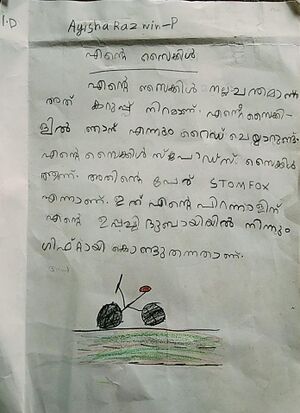 1.D
Ayisha Razwin-P
എന്റെ സൈക്കിൾ
എന്റെ സൈക്കിൾ നല്ല ചന്തമാണ്
അത് കറുപ്പ് നിറമാണ്. എന്റെ സൈക്കി-
ളിൽ ഞാൻ എന്നും റൈഡ് ചെയ്യാറുണ്ട്.
എന്റെ സൈക്കിൾ സ്പോഡ്സ് സൈക്കിൾ
ആണ്. അതിന്റെ പേര് STOMFOX
എന്നാണ്. ഇത് എന്റെ പിറന്നാളിന്
എന്റെ ഉപ്പച്ചി ദുബായിയിൽ നിന്നും
ഗിഫ്റ്റായി കൊണ്ടുതന്നതാണ്.